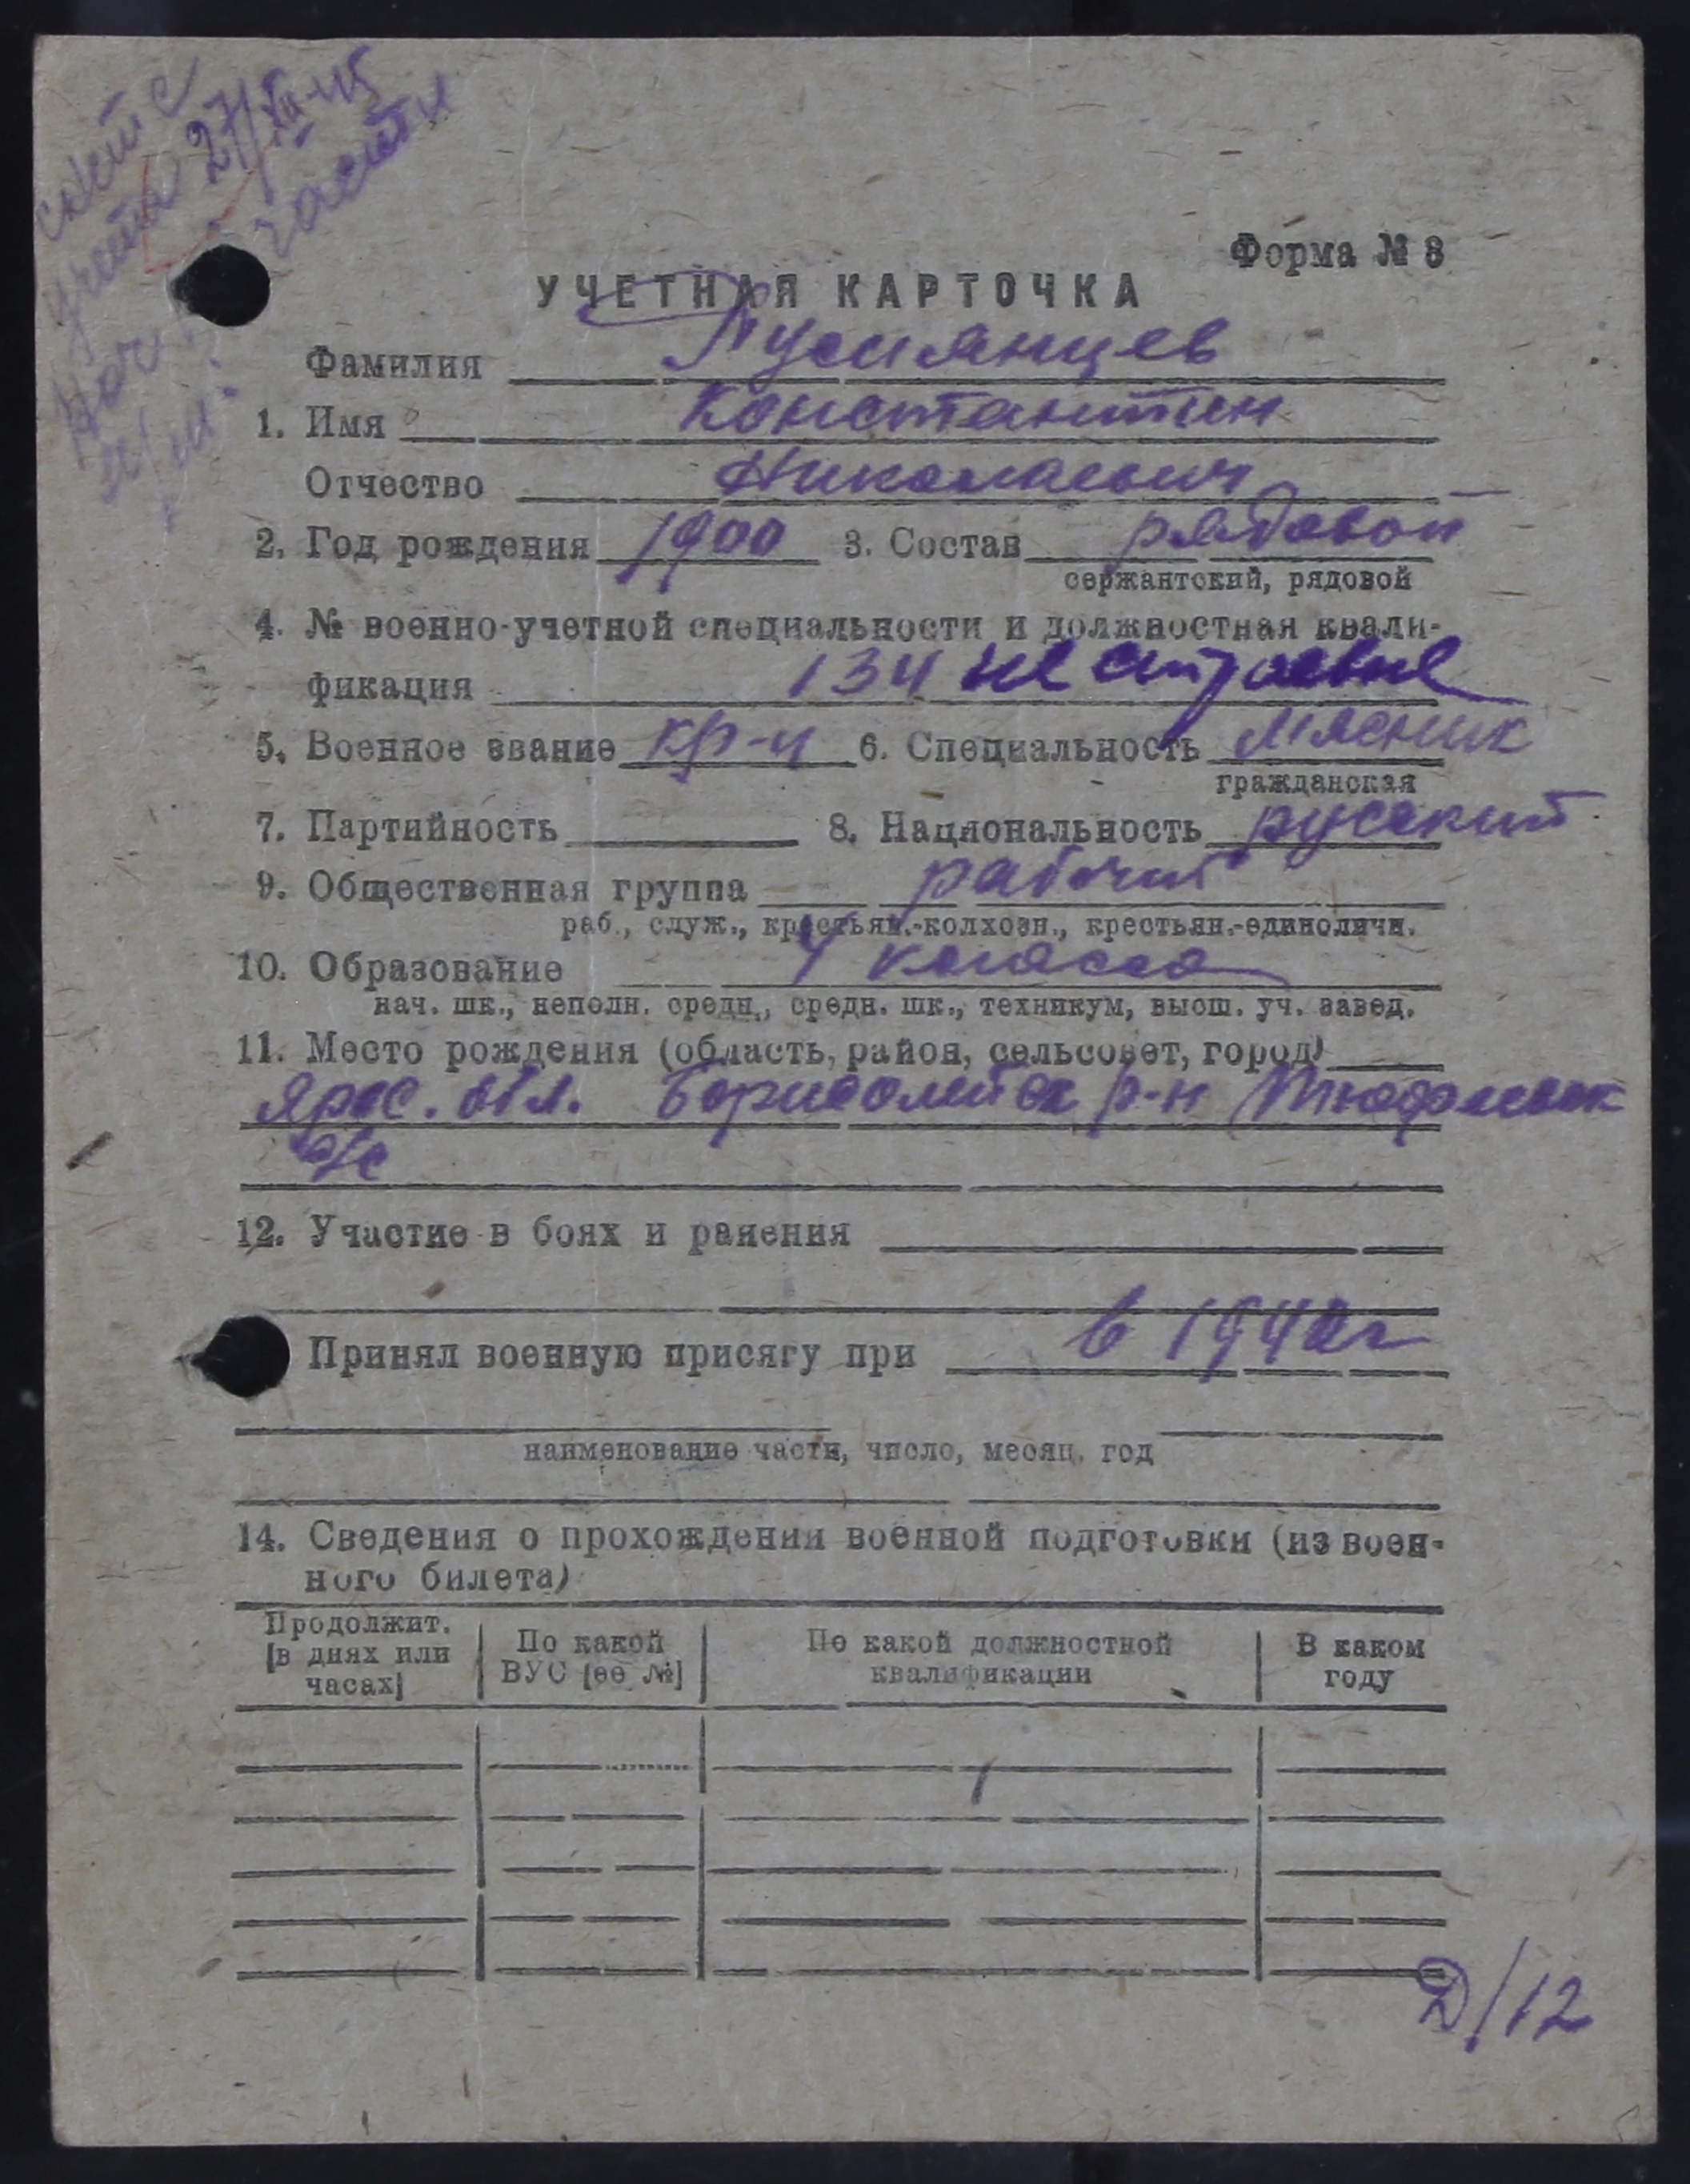 снят с
учета 27/XII-45
Форма № 8
УЧЕТНАЯ КАРТОЧКА
Фамилия
1. Имя Константин
Отчество Николаевич
2. Год рождения 1900 3. Состав рядовой
сержантский, рядовой
4. № военно-учетной специальности и должностная квали-
фикация 134 не строевые
5. Военное звание кр-ц 6. Специальность мясник
гражданская
7. Партийность 8. Национальность русский
9. Общественная группа рабочий
раб., служ., крестьян.-колхозн., крестьян.-единоличн.
10. Образование 4 класса
нач. шк., неполн. средн., средн. шк., техникум, высш. уч. завед.
11. Место рождения (область, район, сельсовет, город)
Ярос. обл. р-н
с/с
12. Участие в боях и ранения
Принял военную присягу при в 1942г
наименование части, число, месяц, год
14. Сведения о прохождении военной подготовки (из воен-
ного билета)
Продолжит. [в днях или часах] По какой ВУС [ее №] По какой должностной квалификации В каком году
Д/12